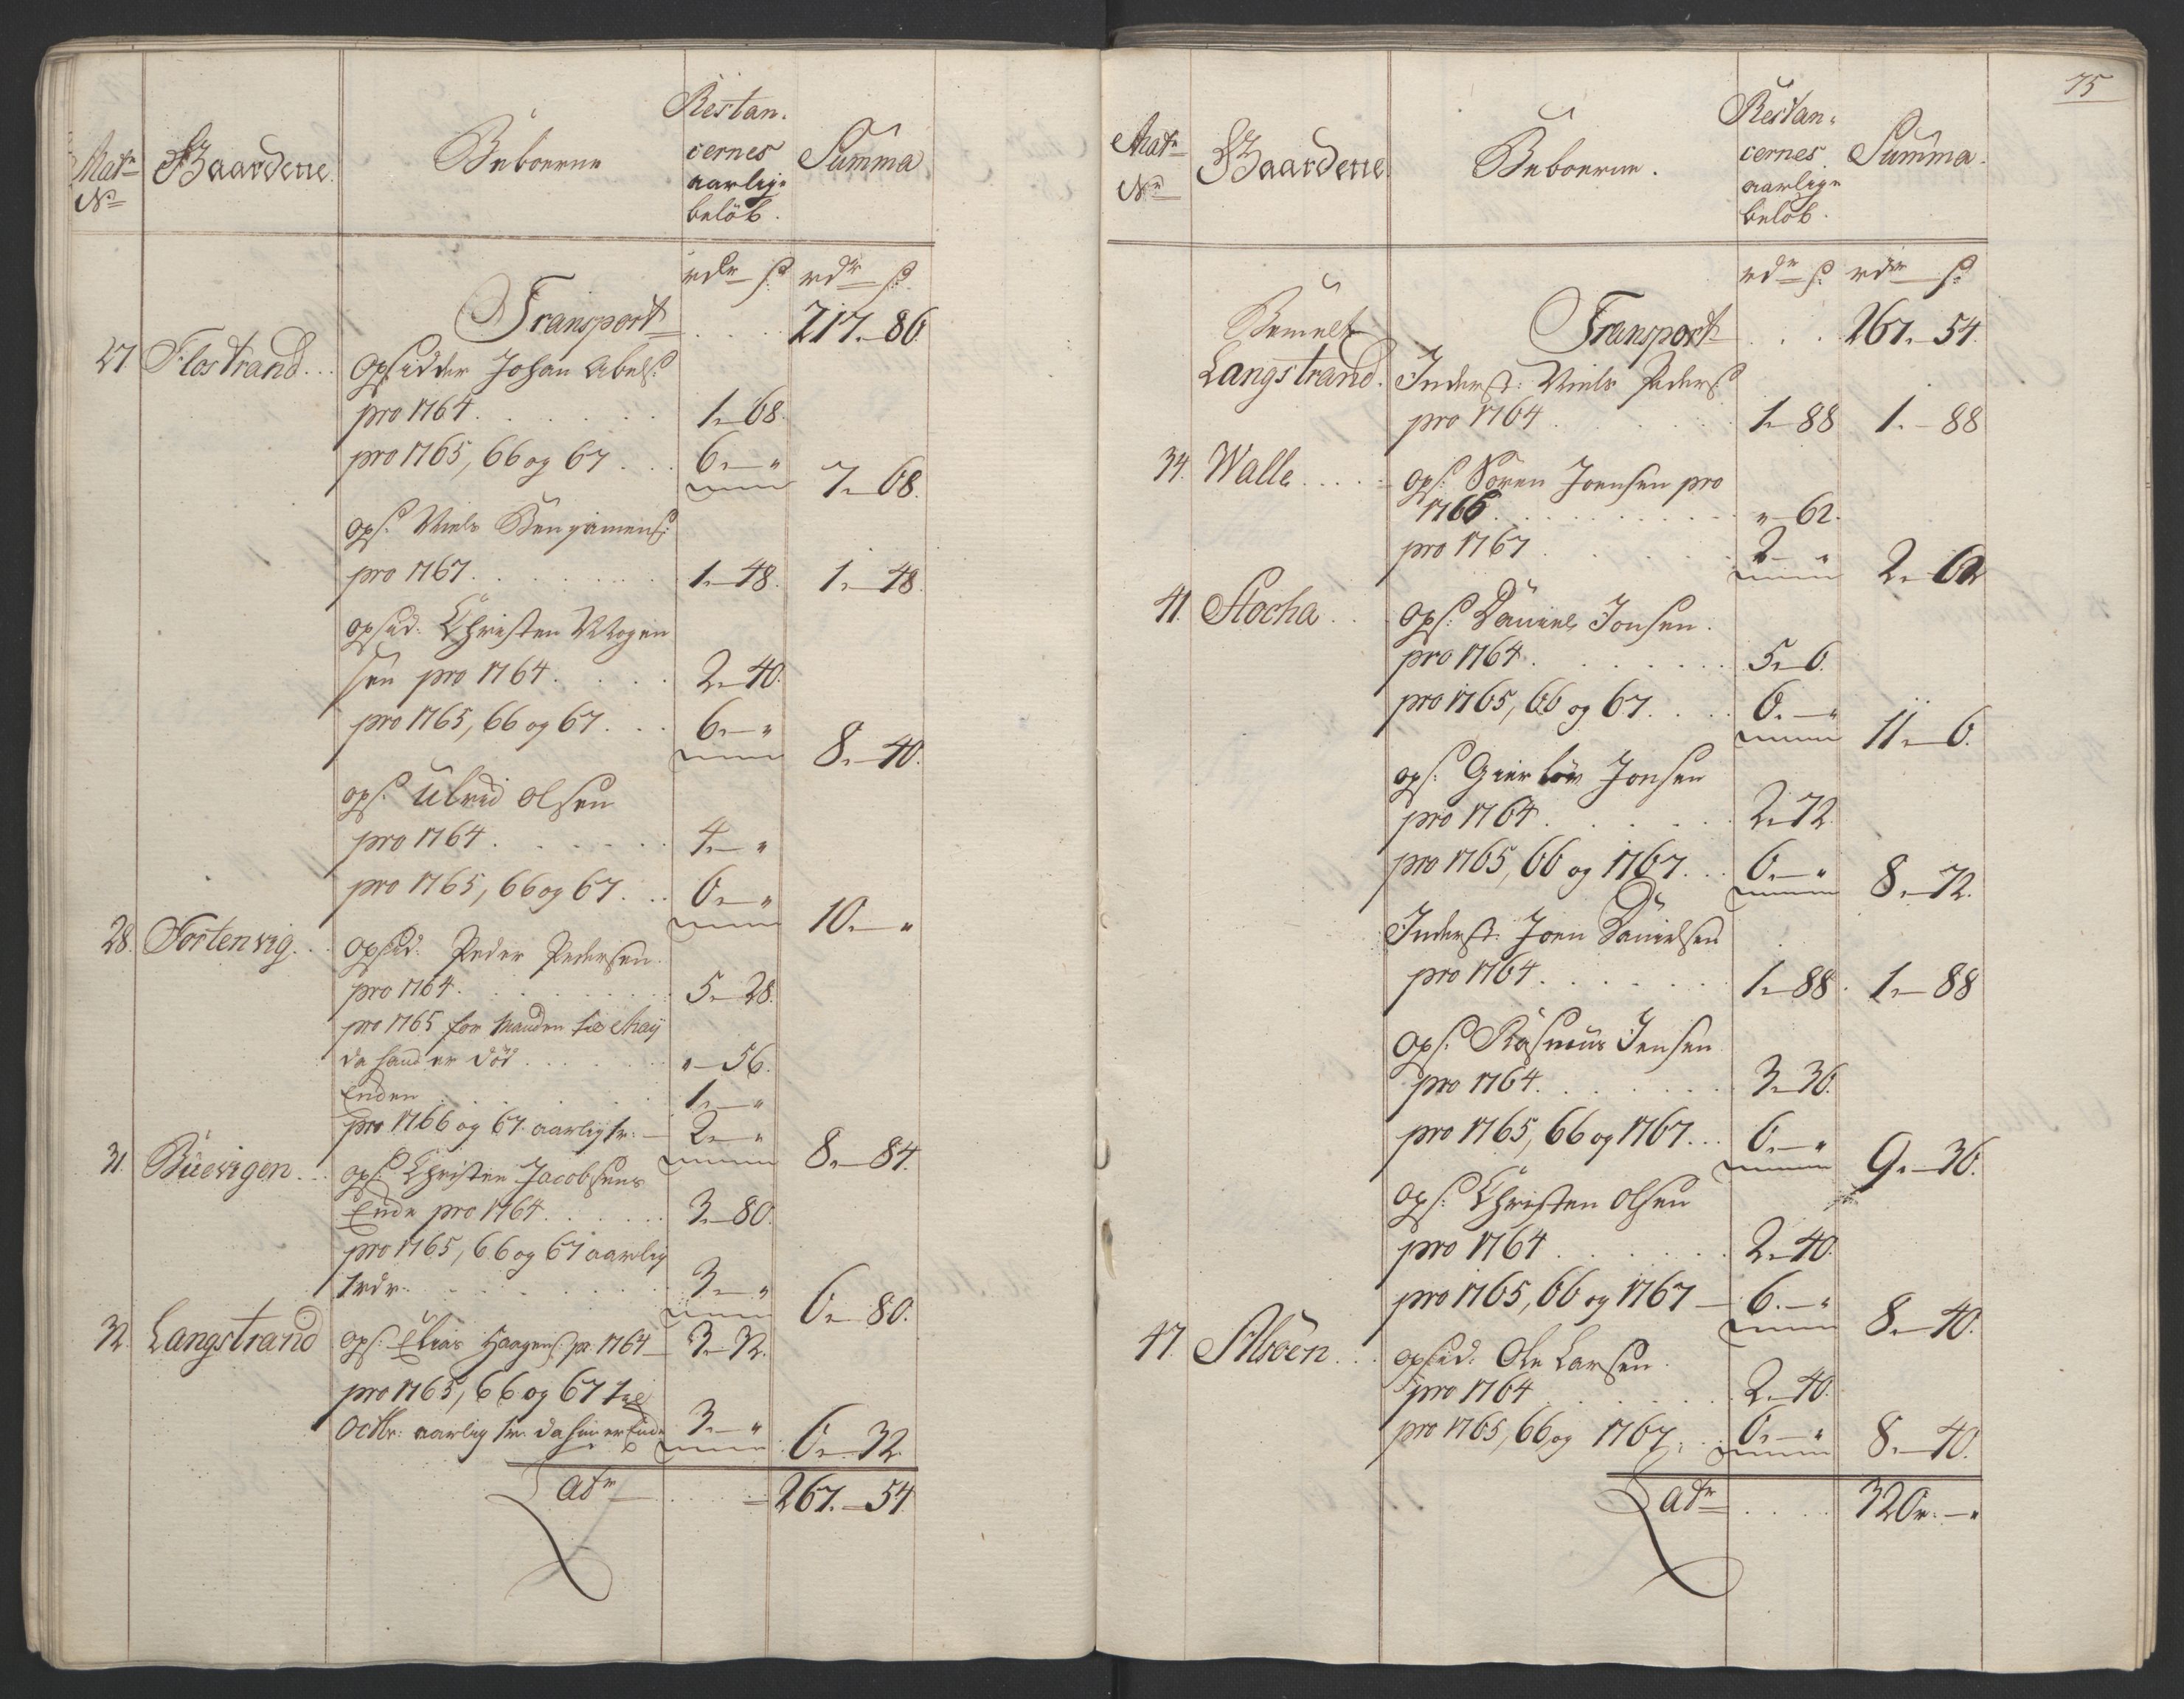 Matr No
Gaardene
Beboerne
Restan-
cernes
aarlige
beløb.
Summa
rdr s. rdr s.
Transport . . . 217.–86.
27. Flostrand . . Opsidder Johan Abels:
pro 1764 . . . . . 1.–68.
pro 1765, 66 og 67 . . . 6.–" 7.–68.
Ops: Niels Benjamens:
pro 1767 . . . . . 1.–48. 1.–48.
Opsid. Christen Mogen
sen pro 1764 . . . . 2.–40.
pro 1765, 66 og 67 . . . 6.–" 8.–40.
Ops: Ulrid Olsen
pro 1764 . . . . . 4.–"
pro 1765, 66 og 67 . . . 6.–" 10.–"
28. Tortenvig . . Opsid. Peder Pedersen.
pro 1764 . . . . . 5.–28.
pro 1765 for Manden til Maij
da hand er død . . . . "–56.
Enken . . . . . 1.–"
pro 1766 og 67 aarlig 1r: – 2.–" 8.–84.
31. Büevigen . . Ops: Christen Jacobsens
Enke pro 1764 . . . . 3.–80.
pro 1765, 66 og 67 aarlig
1 rdr . . . . . 3.–" 6.–80.
32. Langstrand Ops: Elias Haagens: pr. 1764 – 3.–32.
pro 1765, 66 og 67 til
Octbr: aarlig 1r. da hun er Enke 3.–" 6.–32.
Latr . . . 267.–54
75
Matr No
Gaardene
Beboerne.
Restan-
cernes
aarlige
beløb.
Summa.
rdr s. rdr s.
Transport . . . 267.–54.
Bemelte
Langstrand. Inderst: Niels Peders:
pro 1764 . . . . . 1.–88 1.–88
34. Walle . . . . Ops: Søren Joensen pro
1766 . . . . . "–62.
pro 1767 . . . . . 2.–" 2.–62
41. Stocka . . Ops: Daniel Jonsen.
pro 1764 . . . . . 5.–6.
pro 1765, 66 og 67 . . . 6.–" 11.–6.
Ops: Gierløv Jonsen
pro 1764 . . . . . 2.–72.
pro 1765, 66 og 1767 . . 6.–" 8.–72.
Inderst: Joen Danielsen
pro 1764 . . . . . 1.–88. 1.–88
Ops: Rasmus Jensen
pro 1764 . . . . . 3.–36.
pro 1765, 66 og 1767 . . . 6.–" 9.–36.
Ops: Christen Olsen
pro 1764 . . . . . 2.–40.
pro 1765, 66 og 1767 – 6.–" 8.–40.
47. Alsøen . . . Opsid. Ole Larsen.
pro 1764 . . . . . 2.–40.
pro 1765, 66 og 1767 . . 6.–" 8.–40.
Latr . . . . 320.–"